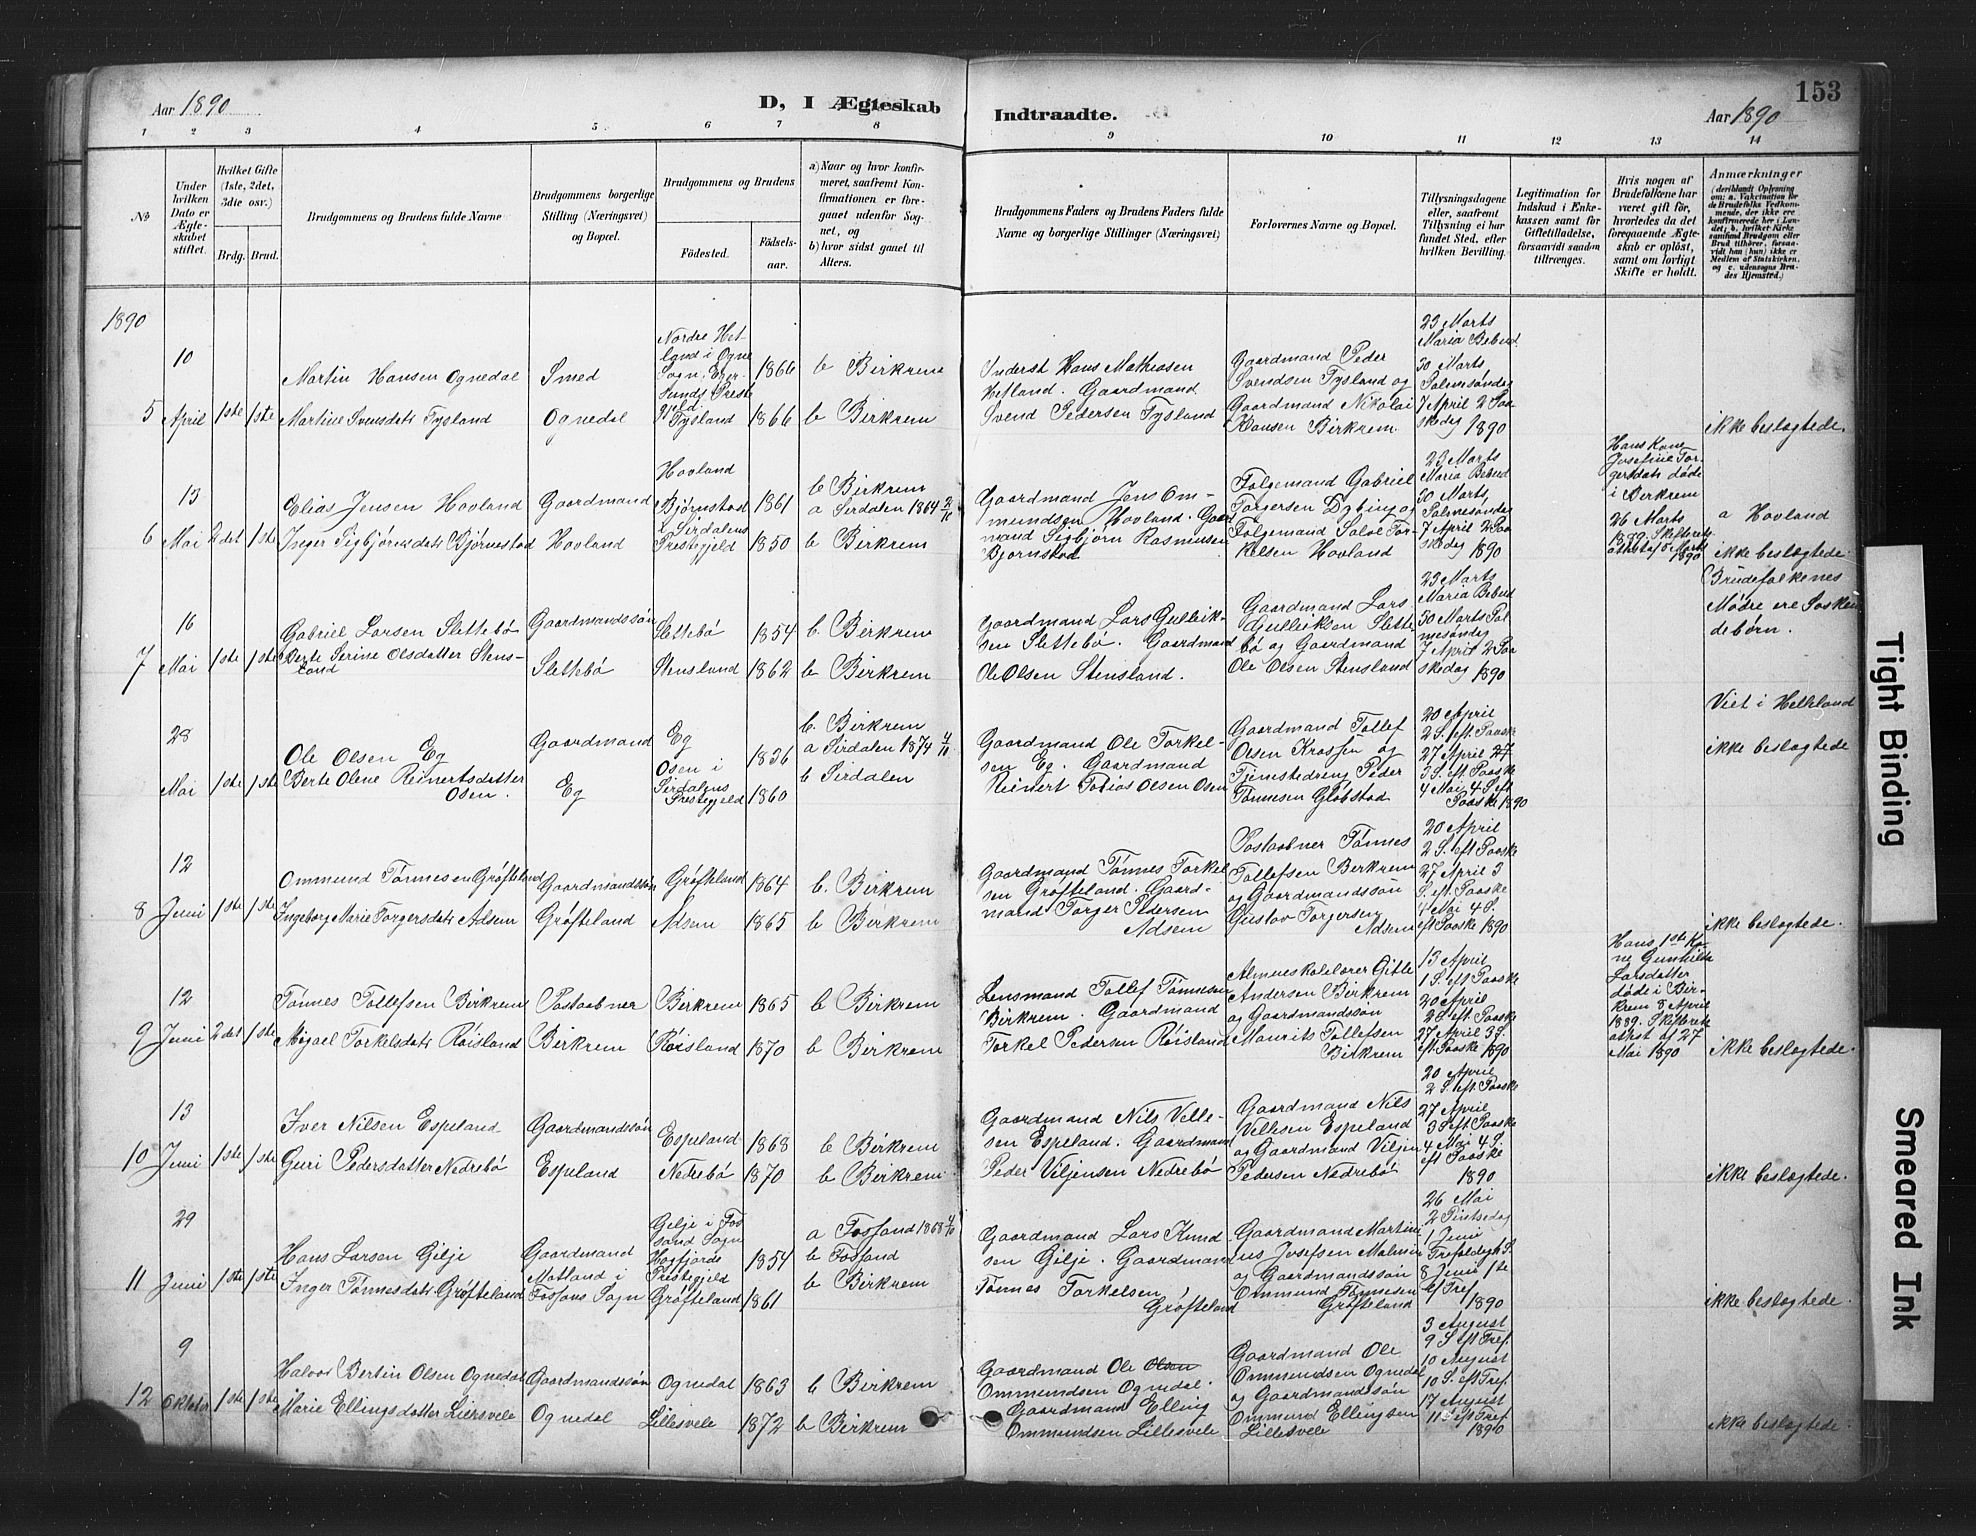 Aar 1890
D, I Ægteskab
Indtraadte.
Aar 1890
153
1 2 3 4 5 6 7 8 9 10 11 12 13 14
No
Under
hvilken
Dato er
Ægte-
skabet
stiftet.
Hvilket Gifte
(1ste, 2det,
3die osv.)
Brdg. Brud.
Brudgommens og Brudens fulde Navne
Brudgommens borgerlige
Stilling (Næringsvei)
og Bopæl.
Brudgommens og Brudens
Fødested.
Fødsels-
aar.
a) Naar og hvor konfir-
meret, saafremt Kon-
firmationen er fore-
gaaet udenfor Sog-
net, og
b) hvor sidst gaaet til
Alters.
Brudgommens Faders og Brudens Faders fulde
Navne og borgerlige Stillinger (Næringsvei)
Forlovernes Navne og Bopæl.
Tillysningsdagene
eller, saafremt
Tillysning ei har
fundet Sted, efter
hvilken Bevilling.
Legitimation for
Indskud i Enke-
kassen samt for
Giftetilladelse,
forsaavidt saadan
tiltrænges.
Hvis nogen af
Brudefolkene har
været gift før,
hvorledes da det
foregaaende Ægte-
skab er opløst,
samt om lovligt
Skifte er holdt.
Anmærkninger
(deriblandt Oplysning
om: a. Vakcination for
de Brudefolks Vedkom-
mende, der ikke ere
konfirmerede her i Lan-
det; b. hvilket Kirke-
samfund Brudgom eller
Brud tilhører, forsaa-
vidt han (hun) ikke er
Medlem af Statskirken,
og c. udensogns Bru-
des Hjemsted.)
1890
5
10
April
1ste 1ste
Martin Hansen Ognedal
Martine Svensdatr Tysland
Smed
Ognedal
Nordre Het-
land i Ogne
Sogn, Eger-
sunds Preste
gjeld
Tysland
1866
1866
b Birkrem
b Birkrem
Inderst Hans Mathiasen
Hetland. Gaardmand
Svend Pedersen Tysland
Gaardmand Peder
Svendsen Tysland og
Gaardmand Nikolai
Hansen Birkrem
23 Marts
Maria Bebud.
30 Marts
Palmesøndag
7 April 2 Paa
skedag 1890
ikke beslægtede.
6
13
Mai
2det 1ste
Elias Jensen Hovland
Inger Sigbjørnsdatr Bjørnestad
Gaardmand
Hovland
Hovland
Bjørnstad
i Sirdalens
Prestegjeld
1861
1850
b Birkrem
a Sirdalen 1864 2/10
b Birkrem
Gaardmand Jens Om-
mundsen Hovland. Gaard
mand Sigbjørn Rasmussen
Bjørnstad
Følgemand Gabriel
Torgersen Dybing og
Følgemand Salve Tor-
kelsen Hovland
23 Marts
Maria Bebud
30 Marts
Palmesøndag
7 April 2 Paa
skedag 1890
Hans Kone
Josefine Tor-
gersdatr døde
i Birkrem
26 Marts
1889. Skifterets
athest af 5 Marts
1890
a Hovland
ikke beslægtede.
7
16
Mai
1ste 1ste
Gabriel Larsen Slettebø
Berte Serine Olsdatter Stens-
land
Gaardmandssøn
Slettebø
Slettebø
Stensland
1854
1862
b. Birkrem
b Birkrem
Gaardmand Lars Gullik-
sen Slettebø. Gaardmand
Ole Olsen Stensland.
Gaardmand Lars
Gulliksen Slette
bø og Gaardmand
Ole Olsen Stensland
23 Marts
Maria Bebud
30 Marts Pal
mesøndag
7 April 2 Paa
skedag 1890
Brudefolkenes
Mødre ere Søsken
debørn.
28
Mai
1ste 1ste
Ole Olsen Eg
Berte Olene Reinertsdatter
Osen.
Gaardmand
Eg
Eg
Osen i
Sirdalens
Prestegjeld
1836
1860
b. Birkrem
a Sirdalen 1874 4/10
b Sirdalen
Gaardmand Ole Torkel-
sen Eg. Gaardmand
Reinert Tobias Olsen Osen
Gaardmand Tollef
Olsen Krossen og
Tjenestedreng Peder
Tønnesen Gløbstad
20 April
2 S. eft Paaske
27 April
3 S. eft. Paaske
4 Mai 4 S eft
Paaske 1890
Viet i Helleland
ikke beslægtede
8
12
Juni
1ste 1ste
Ommund Tønnesen Grøfteland
Ingeborg Marie Torgersdatr Adsem
Gaardmandssøn
Grøfteland
Grøfteland
Adsem
1864
1865
b. Birkrem
b Birkrem
Gaardmand Tønnes Torkel
sen Grøfteland. Gaard-
mand Torger Pedersen
Adsem
Postaabner Tønnes
Tollefsen Birkrem
og Gaardmandssøn
Gustav Torgersen
Adsem
20 April
2 S. eft Paaske
27 April 3
S. eft. Paaske
4 Mai 4 S.
eft Paaske 1890
ikke beslægtede.
9
12
Juni
2det 1ste
Tønnes Tollefsen Birkrem
Migael Torkelsdatr Røisland
Postaabner
Birkrem
Birkrem
Røisland
1865
1870
b Birkrem
b Birkrem
Lensmand Tollef Tønnesen
Birkrem. Gaardmand
Torkel Pedersen Røisland
Almueskolelærer Gitle
Andersen Birkrem
og Gaardmandssøn
Maurits Tollefsen
Birkrem
13 April
1 S. eft Paaske
20 April
2 S eft Paaske
27 April 3 S.
eft Paaske 1890
Hans 1ste Ko-
ne Gunhilda
Larsdatter
døde i Bir-
krem 8 April
1889. Skifterets
athst af 27
Mai 1890
ikke beslægtede.
10
13
Juni
1ste 1ste
Iver Nilsen Espeland
Guri Pedersdatter Nedrebø
Gaardmandssøn
Espeland
Espeland
Nedrebø
1868
1870
b Birkrem
b Birkrem
Gaardmand Nils Velle-
sen Espeland. Gaardmand
Peder Viljensen Nedrebø
Gaardmand Nils
Vellesen Espeland
og Gaardmand Viljen
Pedersen Nedrebø
20 April
2 S. eft. Paaske
27 April
3 S eft Paaske
4 Mai 4 S.
eft Paaske
1890
ikke beslægtede.
11
29
Juni
1ste 1ste
Hans Larsen Gilje
Inger Tønnesdatr Grøfteland
Gaardmand
Matland i
Fossans Sogn
Gilje i Fos
sand Sogn
Høgfjords
Prestegjeld
Grøfteland
1854
1861
a Fossand 1868 4/10
b Fossand
b Birkrem
Gaardmand Lars Knud
sen Gilje. Gaardmand
Tønnes Torkelsen
Grøfteland
Gaardmand Martin
us Josefsen Malmin
og Gaardmandssøn
Ommund Tønnesen
Grøfteland
26 Mai
2 Pintsedag
1 Juni
Trefoldigh S.
8 Juni 1ste
ef Tref
1890
ikke beslægtede.
12
9
Oktober
1ste 1ste
Halvor Bertin Olsen Ognedal
Marie Ellingsdatter Lillesvele
Gaardmandssøn
Ognedal
Ognedal
Lillesvele
1863
1872
b Birkrem
b Birkrem
Gaardmand Ole Olsen
Ommundsen Ognedal.
Gaardmand Elling
Ommundsen Lillesvele
Gaardmand Ole
Ommundsen Ognedal
og Gaardmandssøn
Ommund Ellingsen
Lillesvele
3 August
9 S. eft Tref.
10 August
10 S. eft Tref.
17 August
11 S eft Tref
1890
ikke beslægtede.
Tight Binding
Smeared Ink